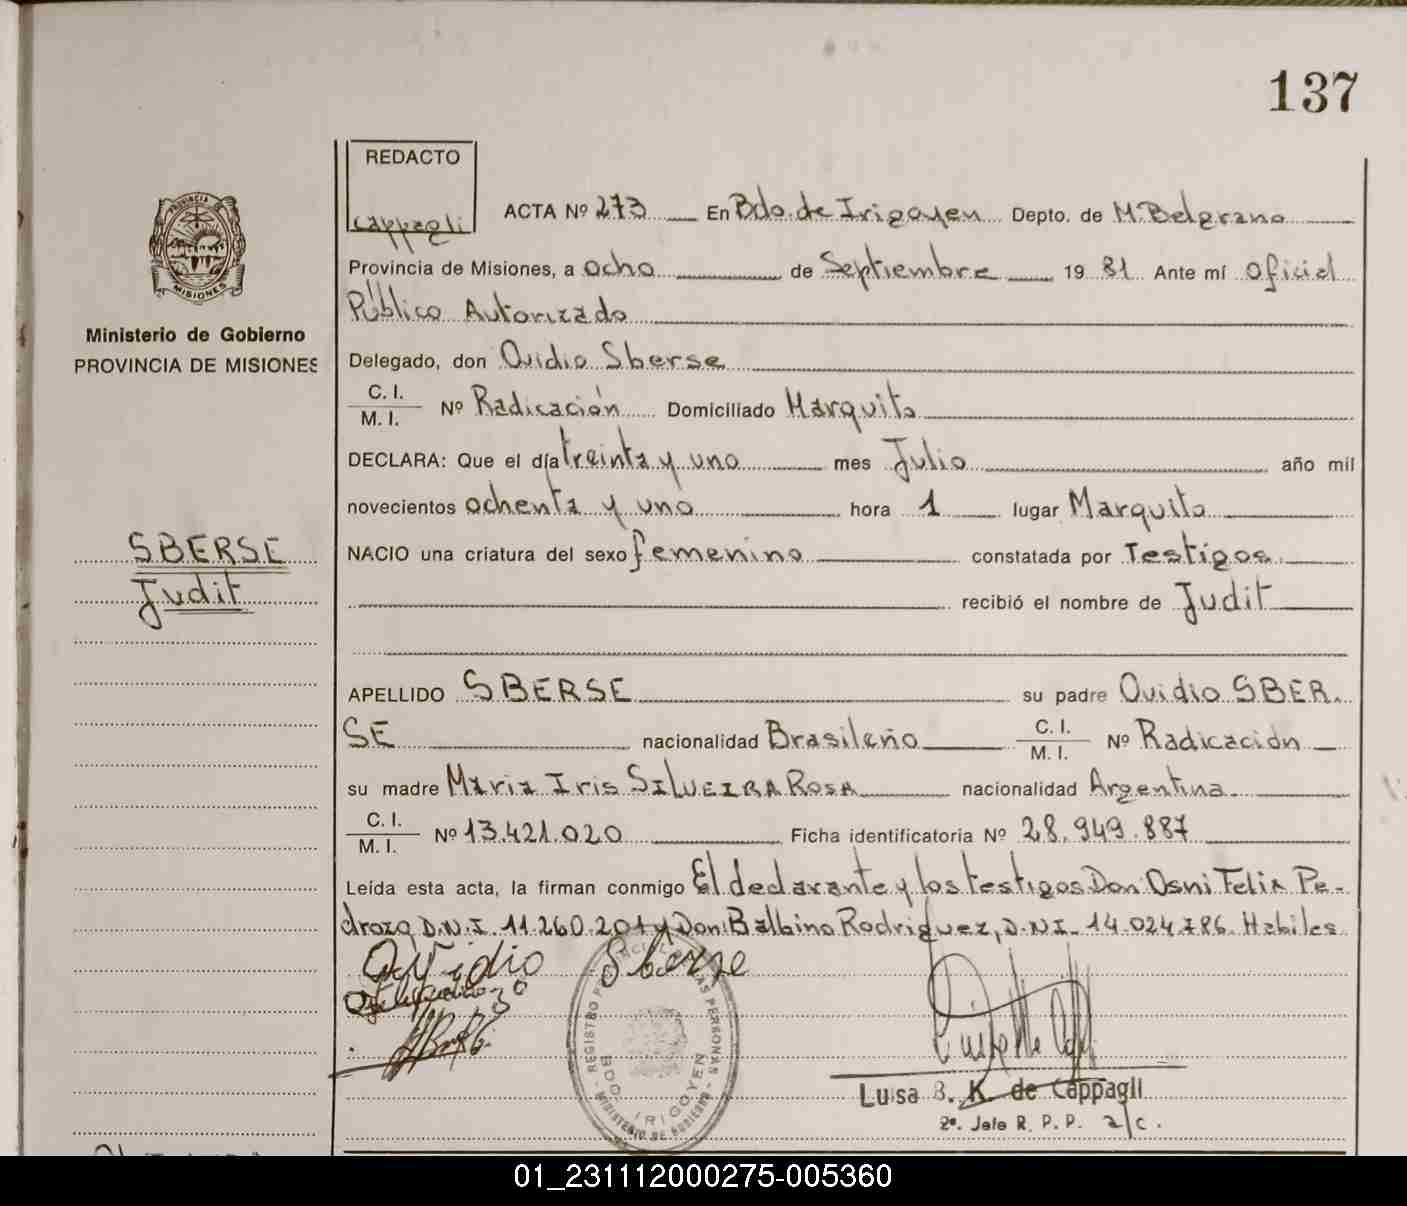 137
REDACTO
Cappagli
ACTA Nº 273 En Bdo. de Irigoyen Depto. de M. Belgrano
Provincia de Misiones, a ocho de Septiembre 19 81 Ante mí oficial
Público Autorizado
Delegado, don Ovidio Sberse
C. I.
M. I. Nº Radicación Domiciliado Marquito
DECLARA: Que el día treinta y uno mes Julio año mil
novecientos ochenta y uno hora 1 lugar Marquito
NACIO una criatura del sexo femenino constatada por Testigos.
recibió el nombre de Judit
APELLIDO SBERSE su padre Ovidio SBER.
SE nacionalidad Brasileño C. I.
M. I. Nº Radicación
su madre Maria Iris SILVEIRA ROSA nacionalidad Argentina.
C. I.
M. I. Nº 13.421.020 Ficha identificatoria Nº 28.949.887
Leída esta acta, la firman conmigo El declarante y los testigos Don Osni Felix Pe-
drozo, D.N.I. 11.260.201 y Don Balbino Rodriguez, D.N.I. 14.024.786. Habiles
Ovidio Sberse
REGISTRO PROVINCIAL DE LAS PERSONAS
BDO. IRIGOYEN
MINISTERIO DE GOBIERNO
Luisa B. K. de Cappagli
2º. Jefe R. P. P. a/c.
PROVINCIA DE
MISIONES
Ministerio de Gobierno
PROVINCIA DE MISIONES
SBERSE
Judit
01_231112000275-005360